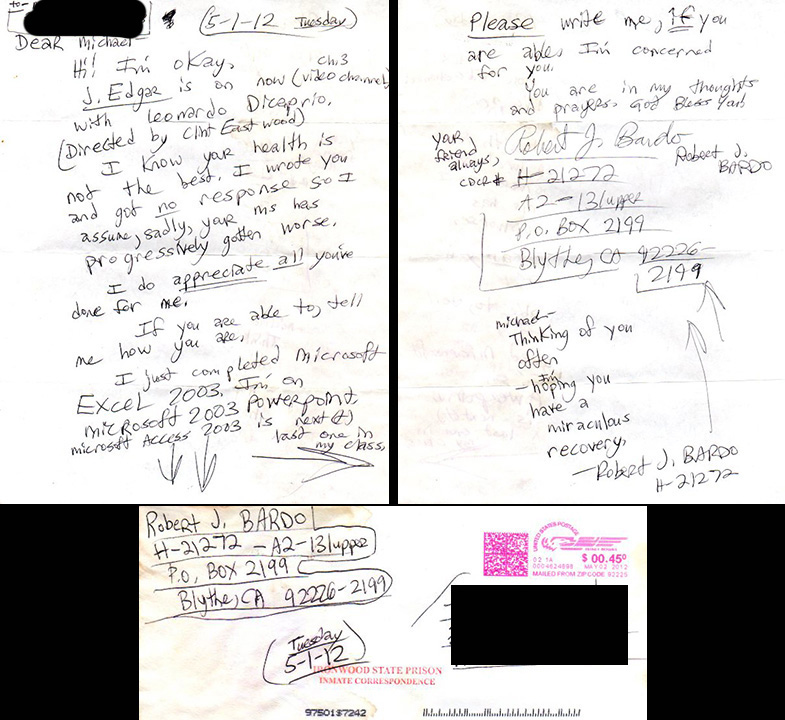 to-
(5-1-12 Tuesday)
Dear Michael-
Hi! I'm okay,
ch.3
J. Edgar is on now (video channel)
with Leonardo Dicaprio.
(Directed by Clint Eastwood)
I know your health is
not the best. I wrote you
and got no response so I
assume, sadly, your ms has
progressively gotten worse.
I do appreciate all you've
done for me.
If you are able to, tell
me how you are.
I just completed Microsoft
EXCEL 2003. I'm on
MICROSOFT 2003 POWERPOINT.
Microsoft Access 2003 is next(+)
last one in
my class.
Please write me, If you
are able, I'm concerned
for you.
You are in my thoughts
and prayers, God Bless You!
your
friend
always,
Robert J. Bardo
Robert J.
BARDO
CDCR# H-21272
A2-131upper
P.O. BOX 2199
Blythe, CA 92226-
2199
michael-
Thinking of you
often
- I'm hoping you
have a
miraculous
recovery.
-Robert J. BARDO
H-21272
Robert J. BARDO
H-21272 - A2-131upper
P.O. BOX 2199
Blythe, CA 92226-2199
(Tuesday
5-1-12)
IRONWOOD STATE PRISON
INMATE CORRESPONDENCE
UNITED STATES POSTAGE
02 1A $ 00.45⁰
0004624898 MAY 02 2012
MAILED FROM ZIP CODE 92225
9750137242